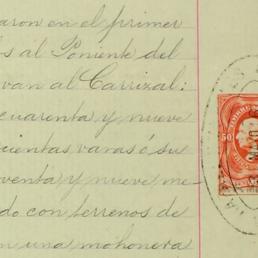 aron en el primer
s al Poniente del
van al Carrizal:
cuarenta y nueve
cientas varas ó su
venta y nueve me
do con terrenos de
n una mohonera
50